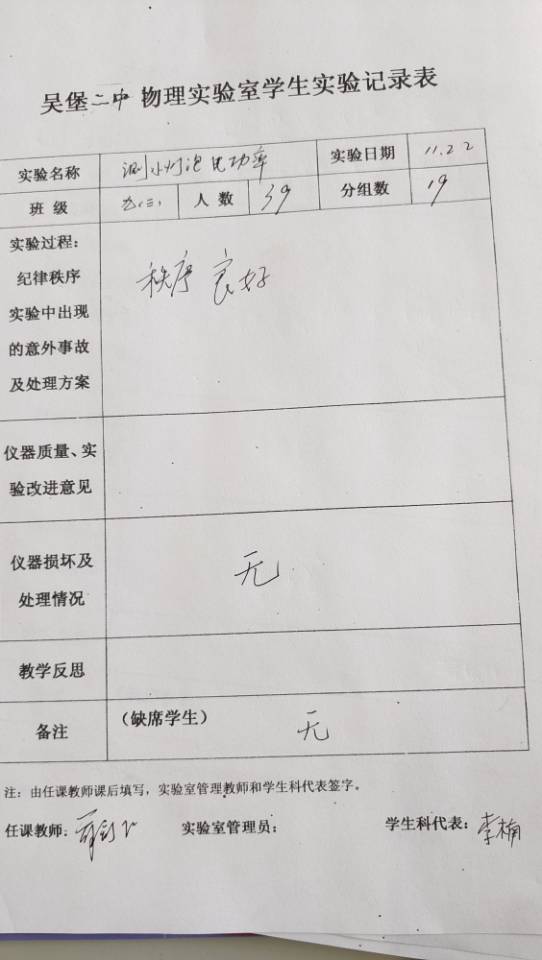 吴堡二中物理实验室学生实验记录表
实验名称 测小灯泡电功率 实验日期 11.22
班 级 人 数 39 分组数 19
实验过程：
纪律秩序
实验中出现
的意外事故
及处理方案
秩序良好
仪器质量、实
验改进意见
仪器损坏及
处理情况
无
教学反思
备注 （缺席学生） 无
注：由任课教师课后填写，实验室管理教师和学生科代表签字。
任课教师： 实验室管理员： 学生科代表：李楠